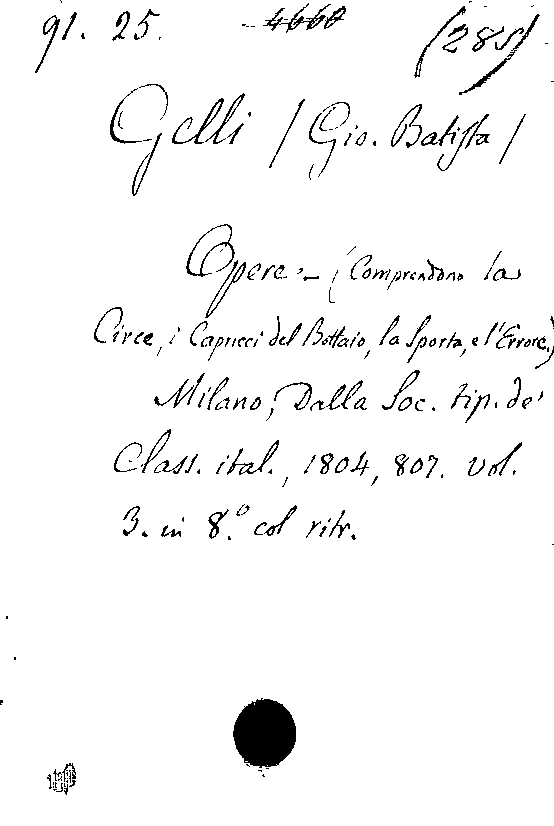 91. 25. 4660 (285)
Gelli / Gio. Batista /
Opere. – (Comprendono la
Circe, i Capricci del Bottaio, la Sporta, e l'Errore)
Milano, Dalla Soc. tip. de'
Class. ital., 1804, 807. vol.
3. in 8.º col ritr.